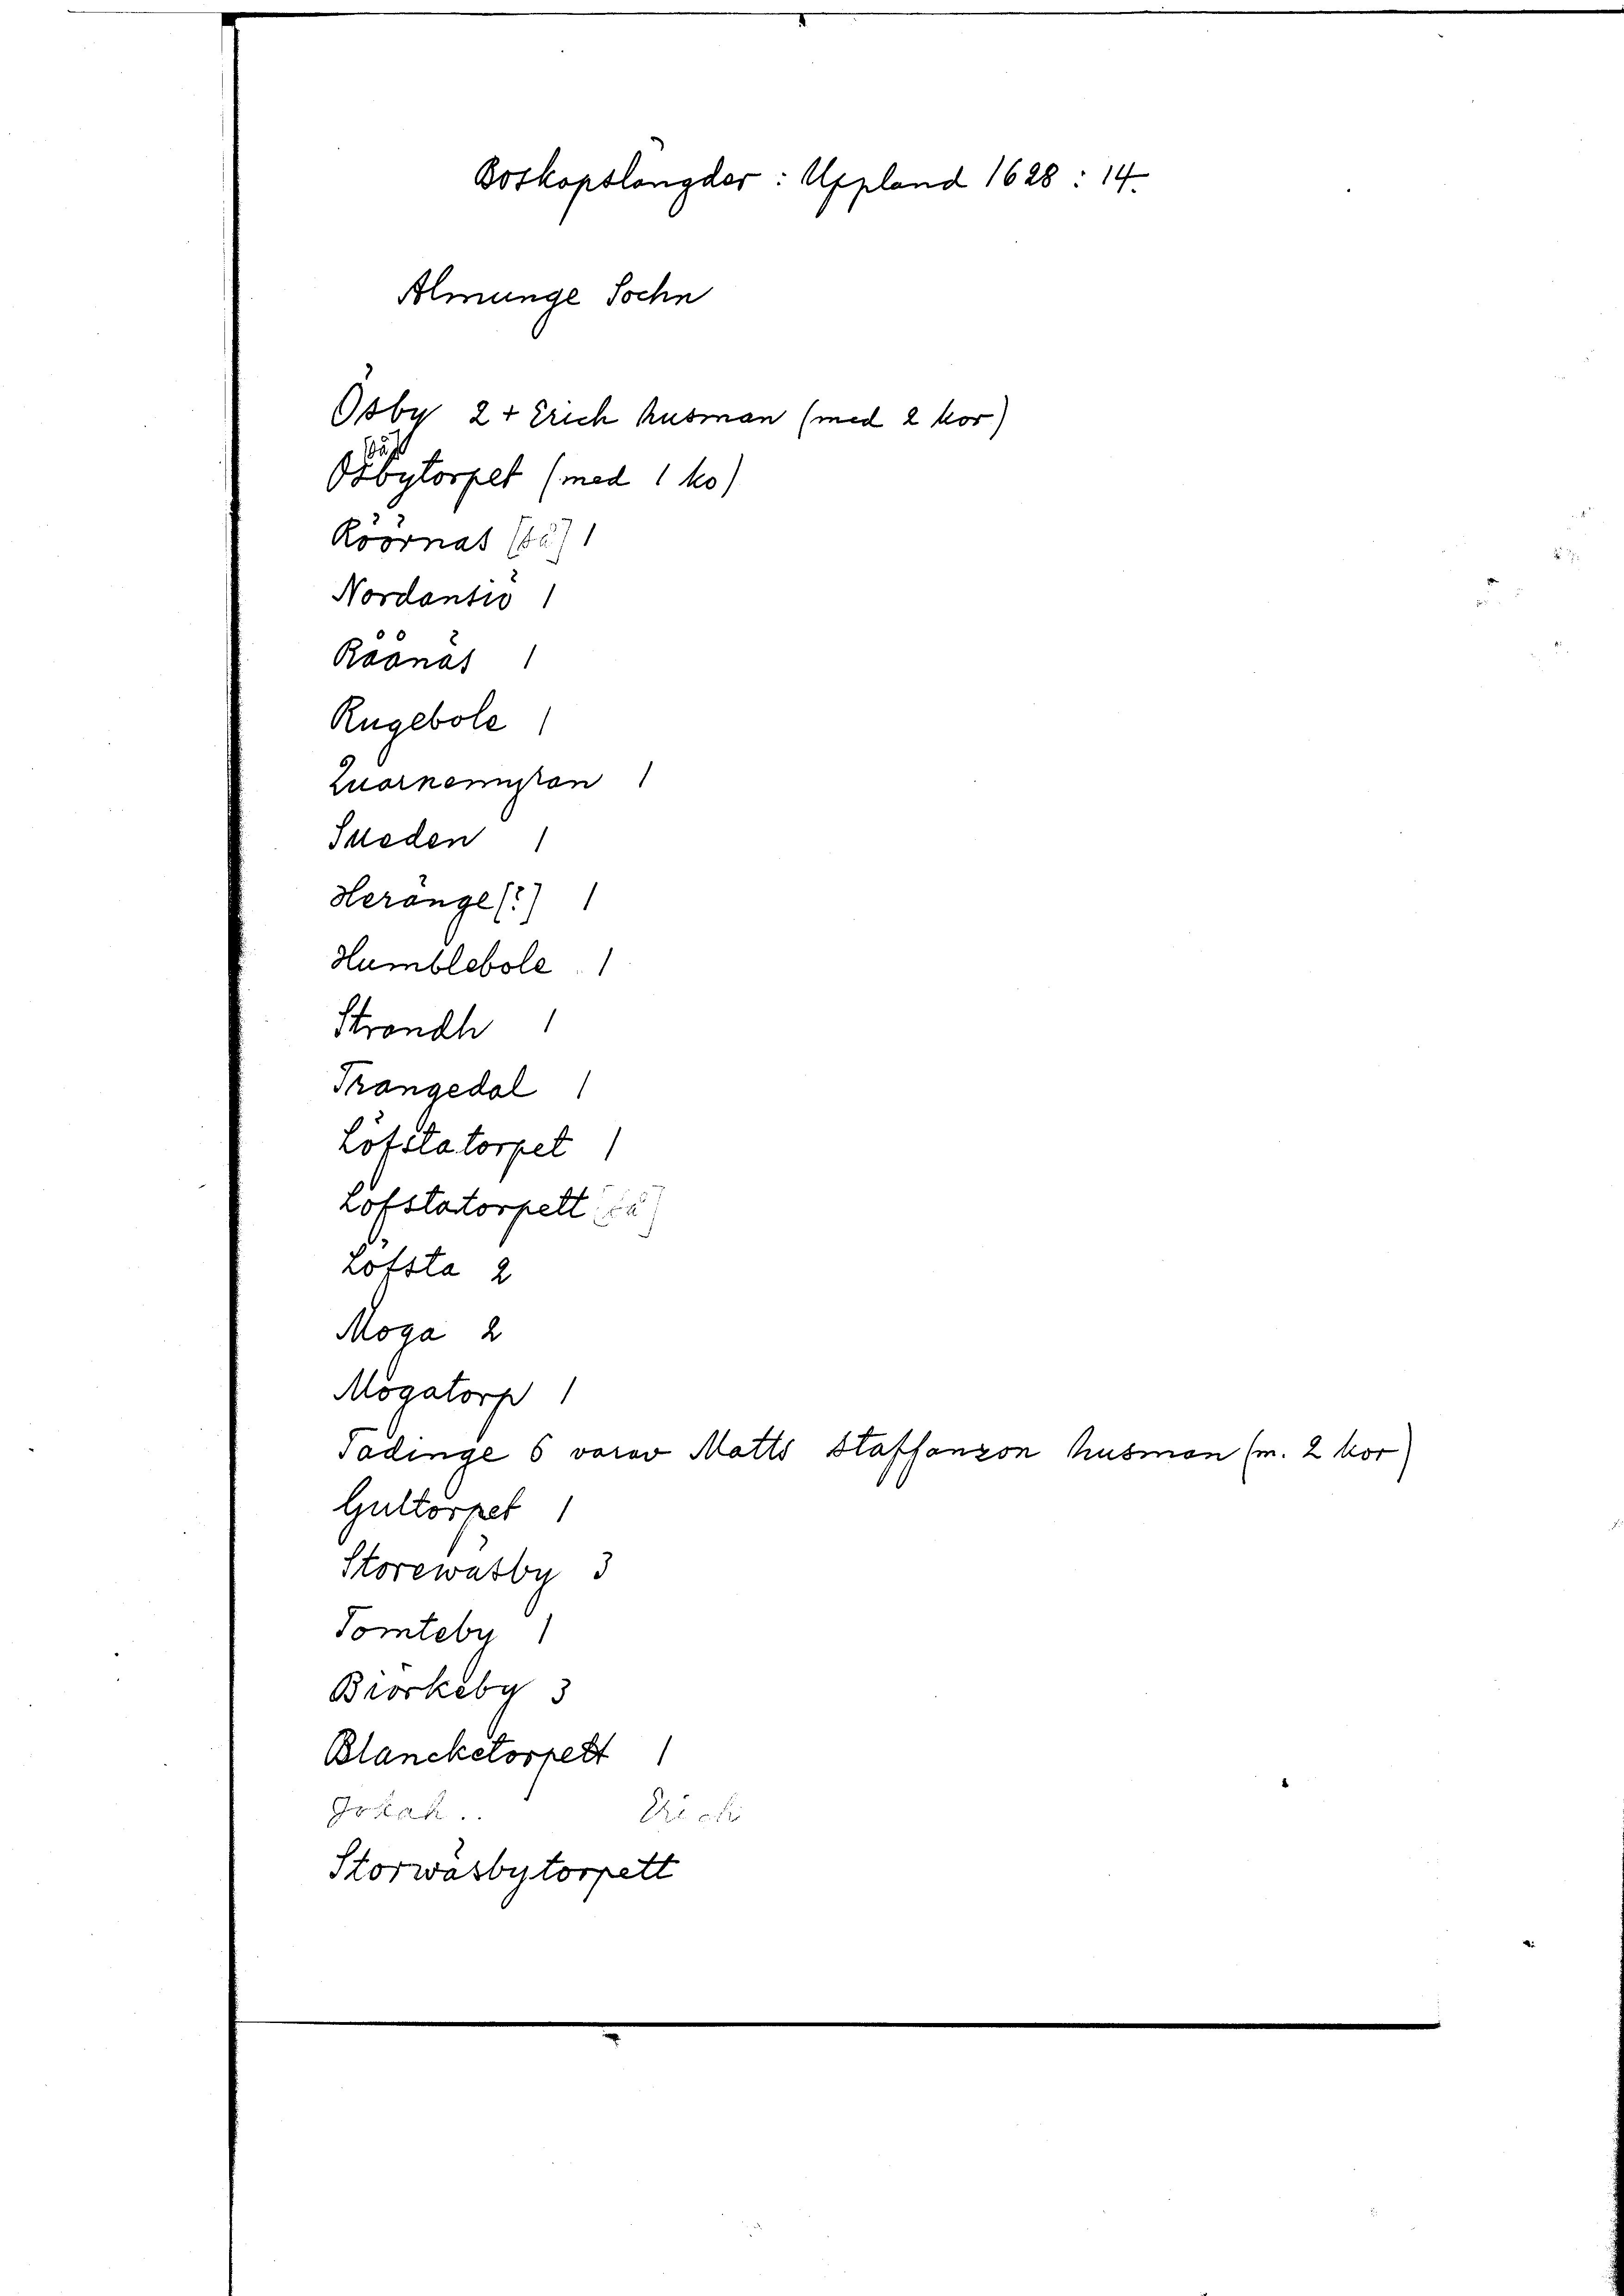 Boskopslängder : Uppland 1628 : 14.
Almunge Sochn
Ösby 2 + Erich husman (med 2 kor)
Ösbytorpet (med 1 ko)
Röörnäs (så) 1
Nordansiö 1
Råånäs 1
Rugebole 1
Quarnemyran 1
Sueden 1
Heränge (?) 1
Humblebole 1
Strandh 1
Trangedal 1
Löfstatorpet 1
Löfstatorpett (så)
Löfsta 2
Moga 2
Mogatorp 1
Tadinge 6 varav Matts Staffanzon husman (m. 2 kor)
Gultorpet 1
Storewäsby 3
Tomteby 1
Biörkeby 3
Blancketorpett 1
Erich
Storwäsbytorpett